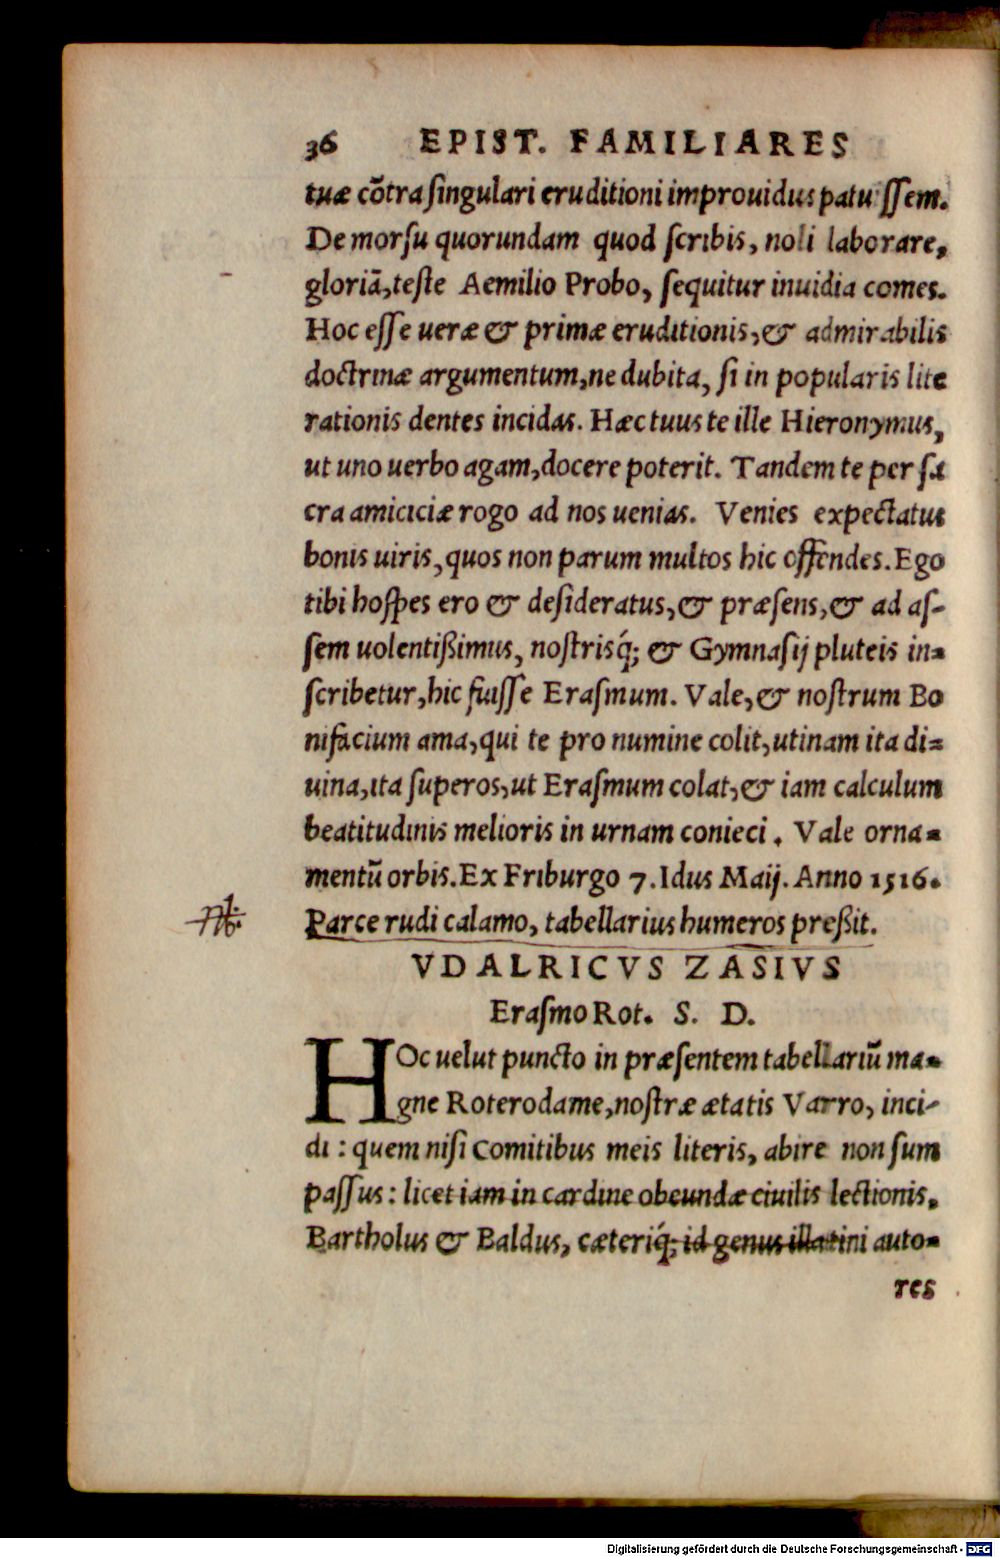 36 EPIST. FAMILIARES
tuæ cõtra singulari eruditioni improuidus patuissem.
De morsu quorundam quod scribis, noli laborare,
gloriã, teste Aemilio Probo, sequitur inuidia comes.
Hoc esse ueræ & primæ eruditionis, & admirabilis
doctrinæ argumentum, ne dubita, si in popularis lite
rationis dentes incidas. Hæc tuus te ille Hieronymus,
ut uno uerbo agam, docere poterit. Tandem te per sa
cra amiciciæ rogo ad nos uenias. Venies expectatus
bonis uiris, quos non parum multos hic offendes. Ego
tibi hospes ero & desideratus, & præsens, & ad as-
sem uolentißimus, nostrisq́; & Gymnasij pluteis in-
scribetur, hic fuisse Erasmum. Vale, & nostrum Bo
nifacium ama, qui te pro numine colit, utinam ita di-
uina, ita superos, ut Erasmum colat, & iam calculum
beatitudinis melioris in urnam conieci. Vale orna-
mentũ orbis. Ex Friburgo 7. Idus Maij. Anno 1516.
Parce rudi calamo, tabellarius humeros preßit.
VDALRICVS ZASIVS
Erasmo Rot. S. D.
HOc uelut puncto in præsentem tabellariũ ma-
gne Roterodame, nostræ ætatis Varro, inci-
di : quem nisi comitibus meis literis, abire non sum
passus : licet iam in cardine obeundæ ciuilis lectionis,
Bartholus & Baldus, cæteriq́; id genus illatini auto-
res
Digitalisierung gefördert durch die Deutsche Forschungsgemeinschaft - DFG